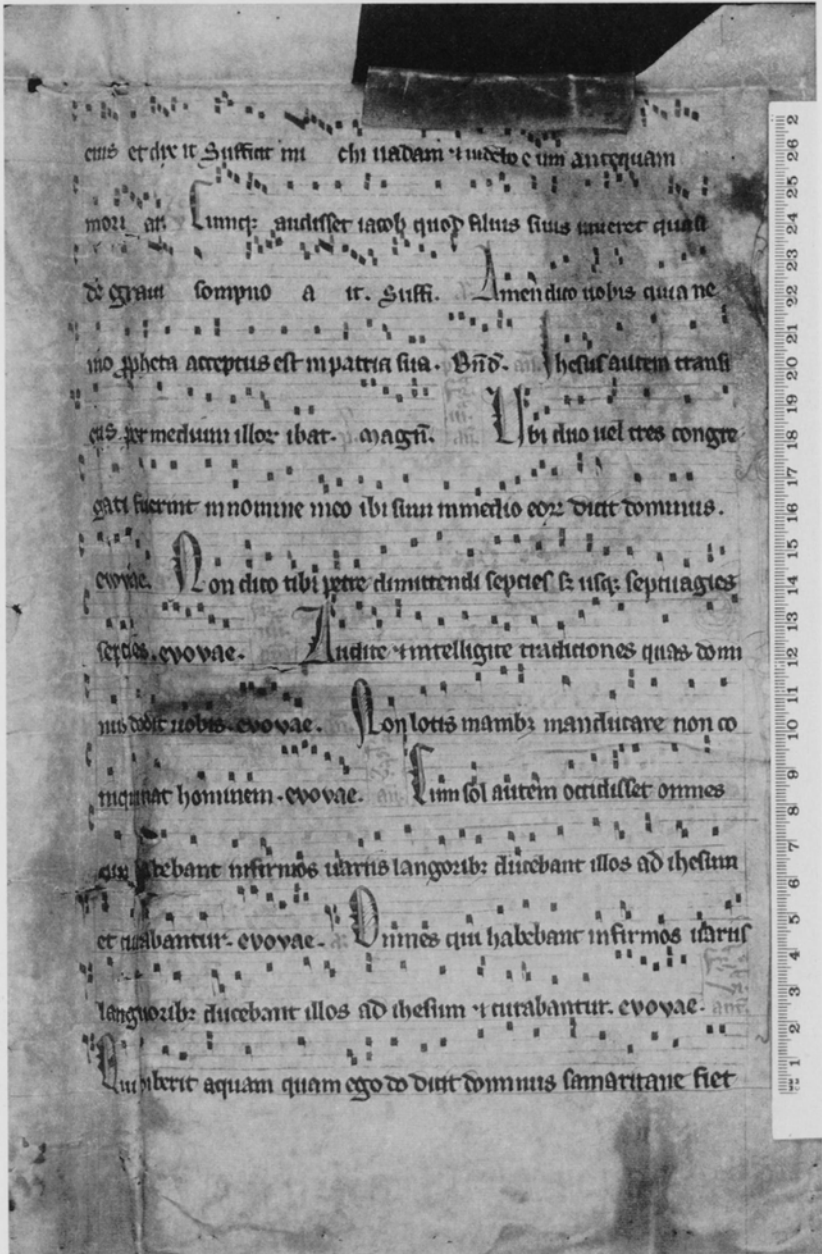 eius et dix it Sufficit mi chi uadam ⁊ uidebo e um antequam
mori ar. Cumqꝫ audisset iacob quod filius suus uiueret quasi
de graui sompno a it. Suffi. Amen dico uobis quia ne
mo ꝓpheta acceptus est in patria sua. Bn̄d. Ihesus autem transi
ens per medium illoꝝ ibat. Magn̄. Ubi duo uel tres congre
gati fuerint in nomine meo ibi sum in medio eoꝝ dicit dominus.
evovae. Non dico tibi petre dimittendi septies sꝫ usqꝫ septuagies
septies. evovae. Audite ⁊ intelligite tradiciones quas domi
nus dedit uobis. evovae. Non lotis manibꝫ manducare non co
inquinat hominem. evovae. Cum sol autem occidisset omnes
qui habebant infirmos uariis langoribꝫ ducebant illos ad ihesum
et curabantur. evovae. Omnes qui habebant infirmos uariis
languoribꝫ ducebant illos ad ihesum ⁊ curabantur. evovae.
Qui biberit aquam quam ego do dicit dominus samaritane fiet
1 2 3 4 5 6 7 8 9 10 11 12 13 14 15 16 17 18 19 20 21 22 23 24 25 26 2